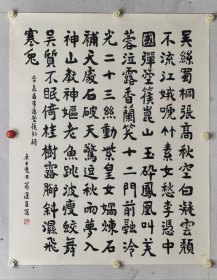 吳絲蜀桐張高秋空白凝雲頹
不流江娥啼竹素女愁李憑中
國彈箜篌崑山玉碎鳳凰叫芙
蓉泣露香蘭笑十二門前融冷
光二十三絲動紫皇女媧煉石
補天處石破天驚逗秋雨夢入
神山教神嫗老魚跳波瘦蛟舞
吳質不眠倚桂樹露腳斜飛濕
寒兔
李長吉李憑箜篌引詩